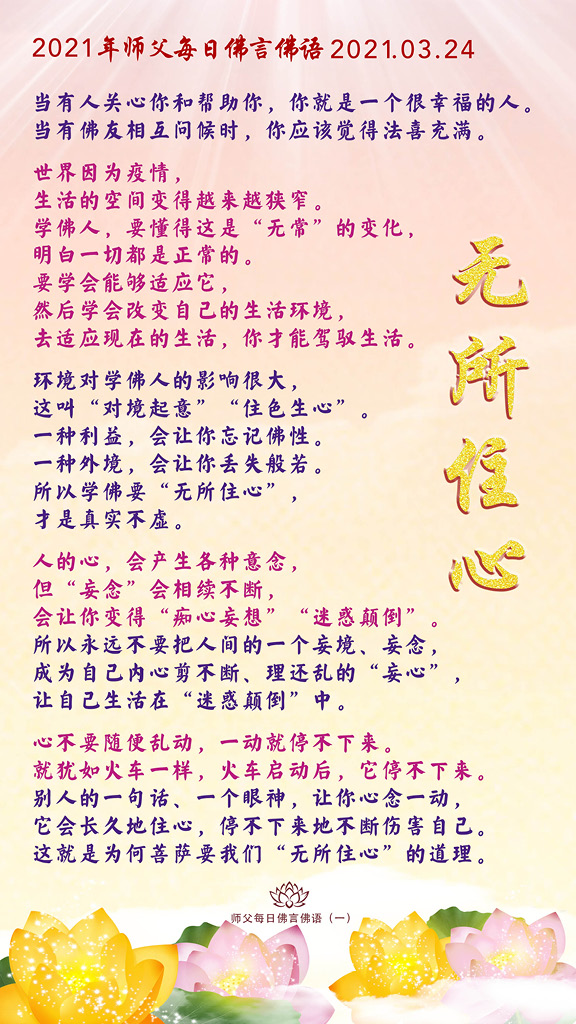 2021年师父每日佛言佛语 2021.03.24
当有人关心你和帮助你，你就是一个很幸福的人。
当有佛友相互问候时，你应该觉得法喜充满。
世界因为疫情，
生活的空间变得越来越狭窄。
学佛人，要懂得这是“无常”的变化，
明白一切都是正常的。
要学会能够适应它，
然后学会改变自己的生活环境，
去适应现在的生活，你才能驾驭生活。
环境对学佛人的影响很大，
这叫“对境起意”“住色生心”。
一种利益，会让你忘记佛性。
一种外境，会让你丢失般若。
所以学佛要“无所住心”，
才是真实不虚。
人的心，会产生各种意念，
但“妄念”会相续不断，
会让你变得“痴心妄想”“迷惑颠倒”。
所以永远不要把人间的一个妄境、妄念，
成为自己内心剪不断、理还乱的“妄心”，
让自己生活在“迷惑颠倒”中。
心不要随便乱动，一动就停不下来。
就犹如火车一样，火车启动后，它停不下来。
别人的一句话、一个眼神，让你心念一动，
它会长久地住心，停不下来地不断伤害自己。
这就是为何菩萨要我们“无所住心”的道理。
无所住心
师父每日佛言佛语（一）